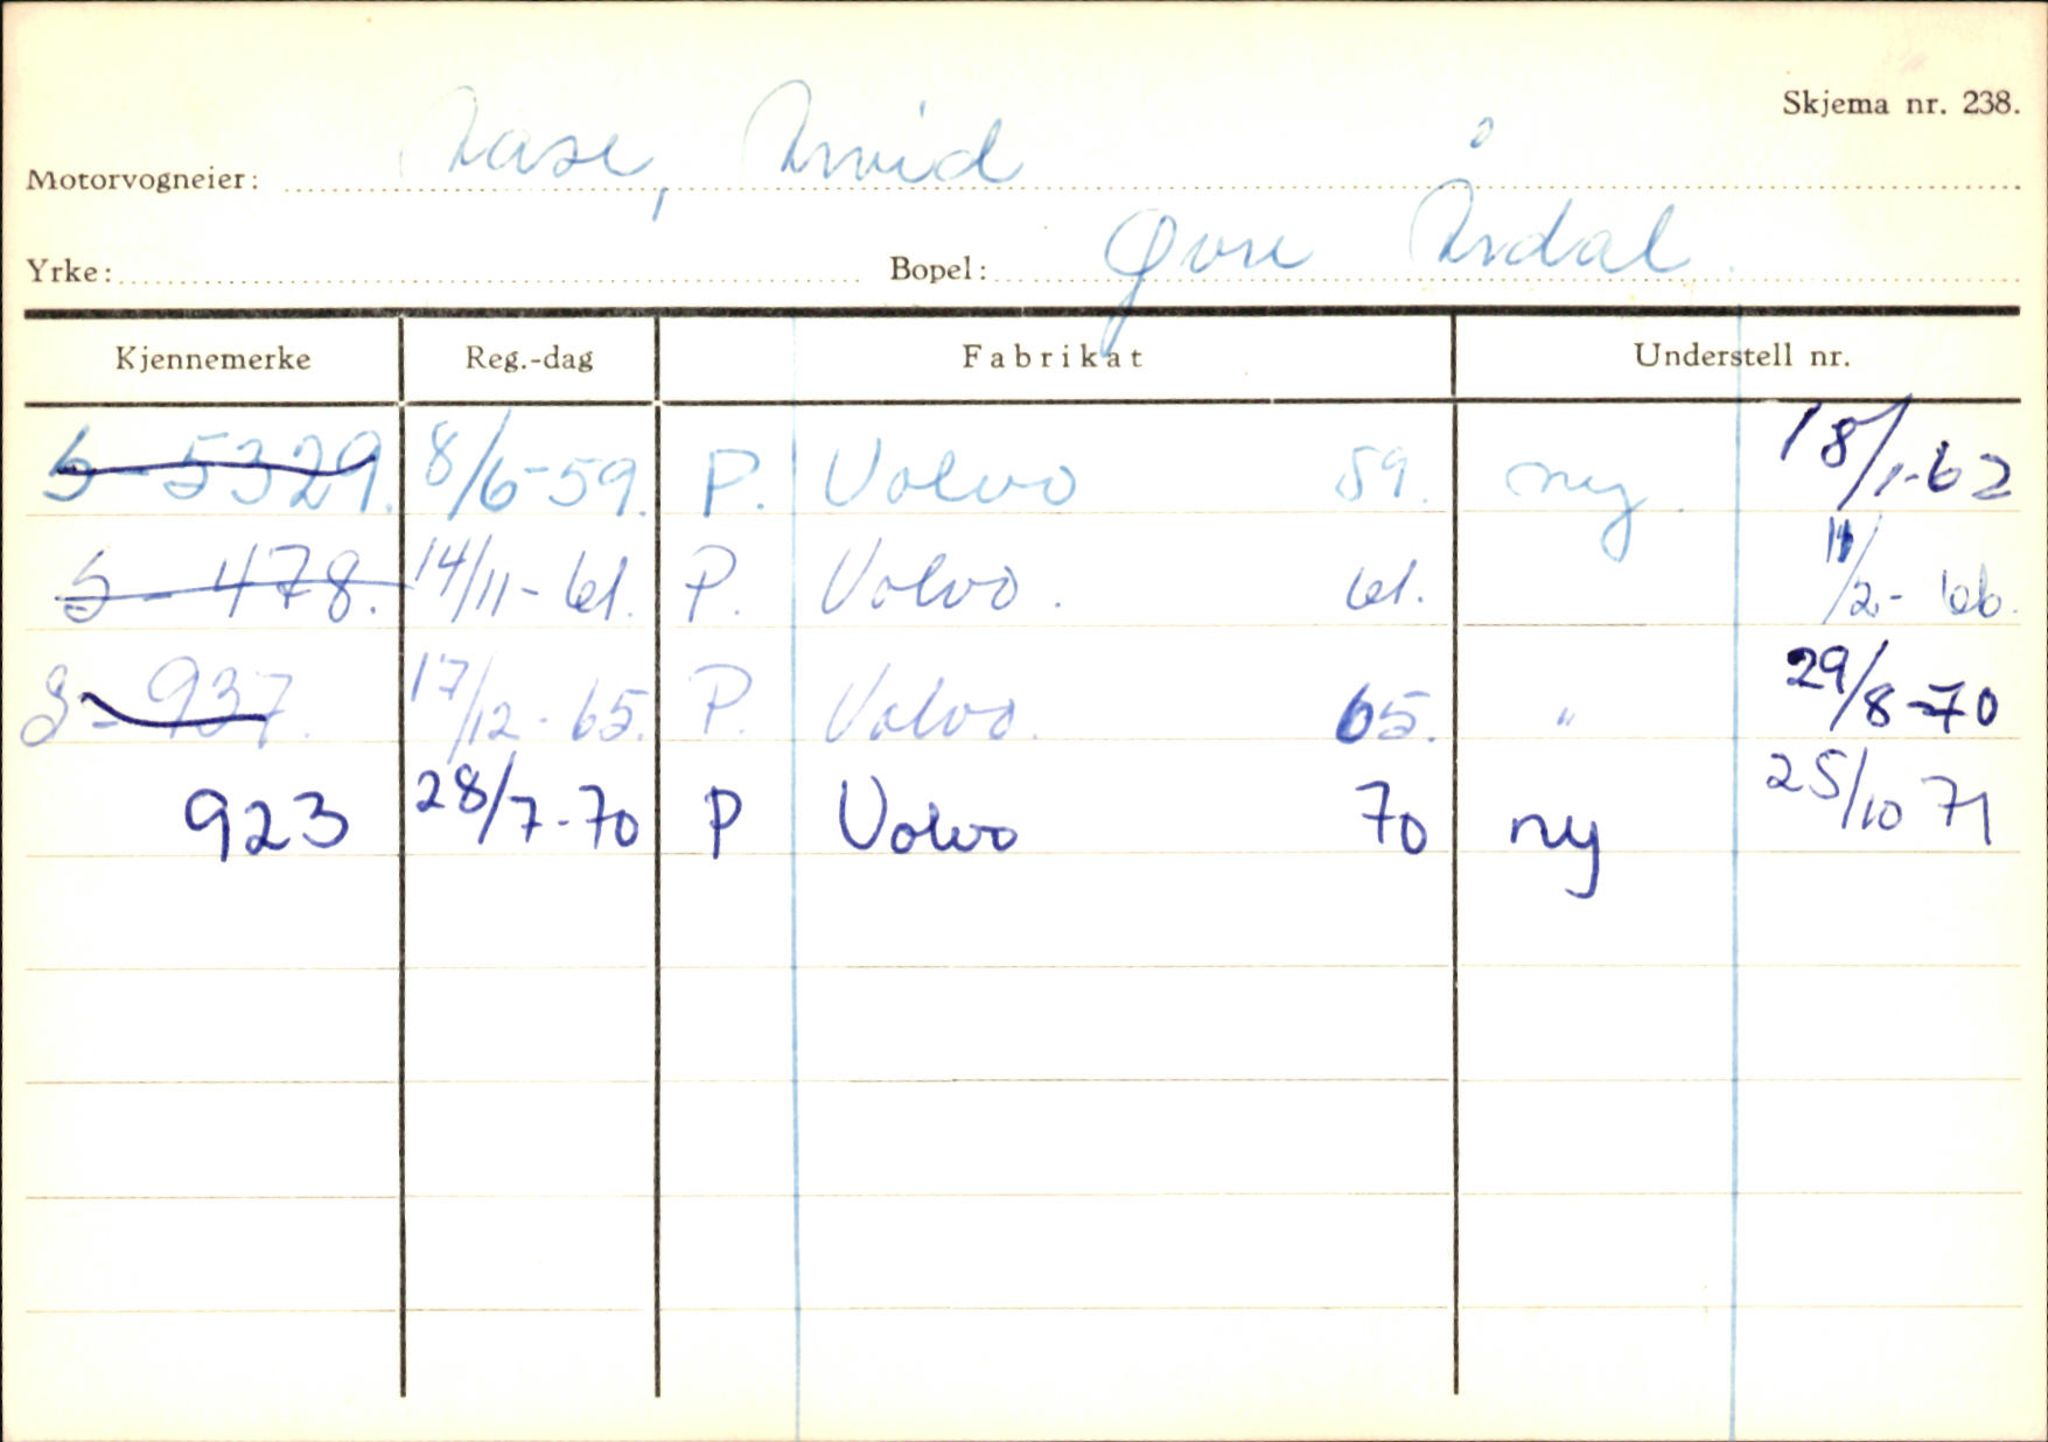 Skjema nr. 238.
Motorvogneier: Aase, Arvid
Yrke: Bopel: Øvre Årdal.
Kjennemerke Reg.-dag Fabrikat Understell nr.
S-5329. 8/6-59. P. Volvo 59. ny. 18/1-62
S-478. 14/11-61. P. Volvo. 61. 11/2-66.
S-937. 17/12-65. P. Volvo. 65. " 29/8-70
923 28/7-70 P Volvo 70 ny 25/10 71